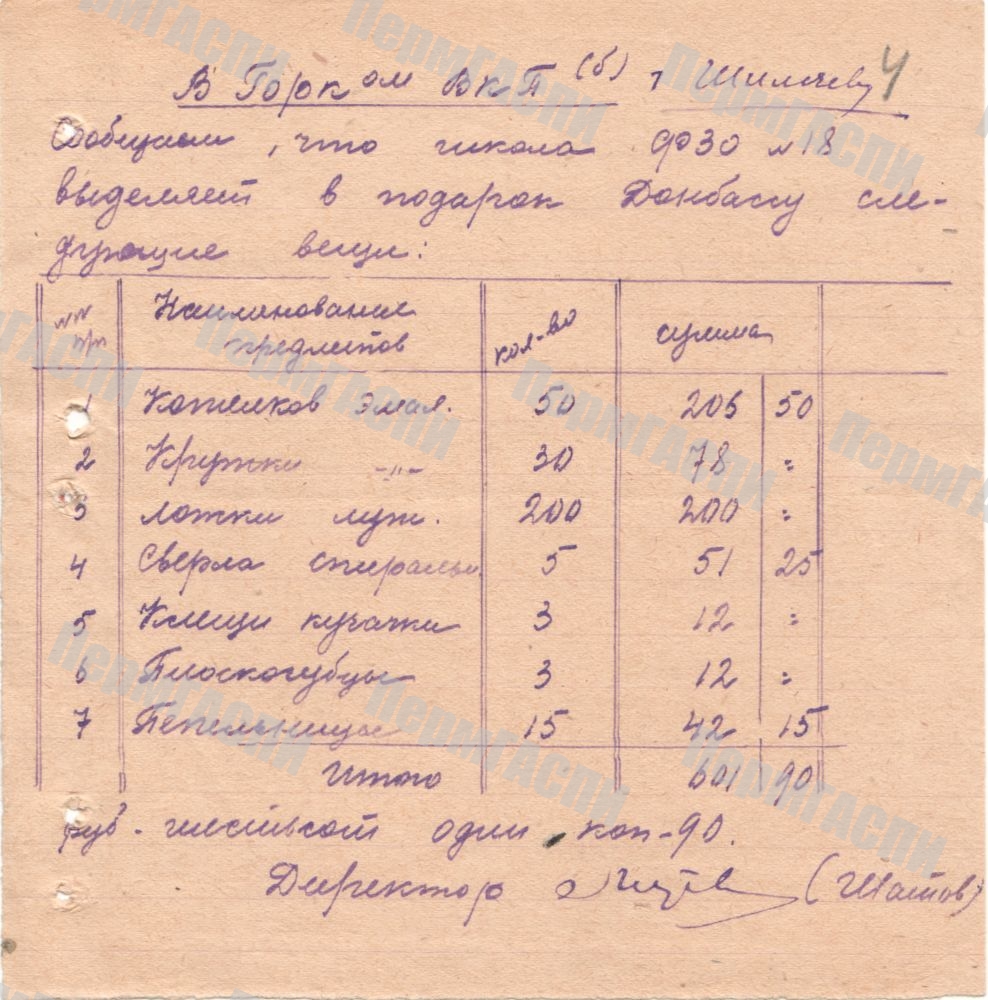 4
В Горком ВКП(б) т
Сообщаем, что школа ФЗО №18
выделяет в подарок Донбассу сле-
дующие вещи:
№№ п/п Наименование предметов кол-во сумма
1 Котелков эмал. 50 206 50
2 Кружки -"- 30 78 =
3 Ложки луж. 200 200 =
4 Сверла спиральн. 5 51 25
5 Клещи кусачки 3 12 =
6 Плоскогубцы 3 12 =
7 Пепельницы 15 42 15
Итого 601 90
руб - шестьсот один коп-90.
Директор (Шатов)
ПермГАСПИ